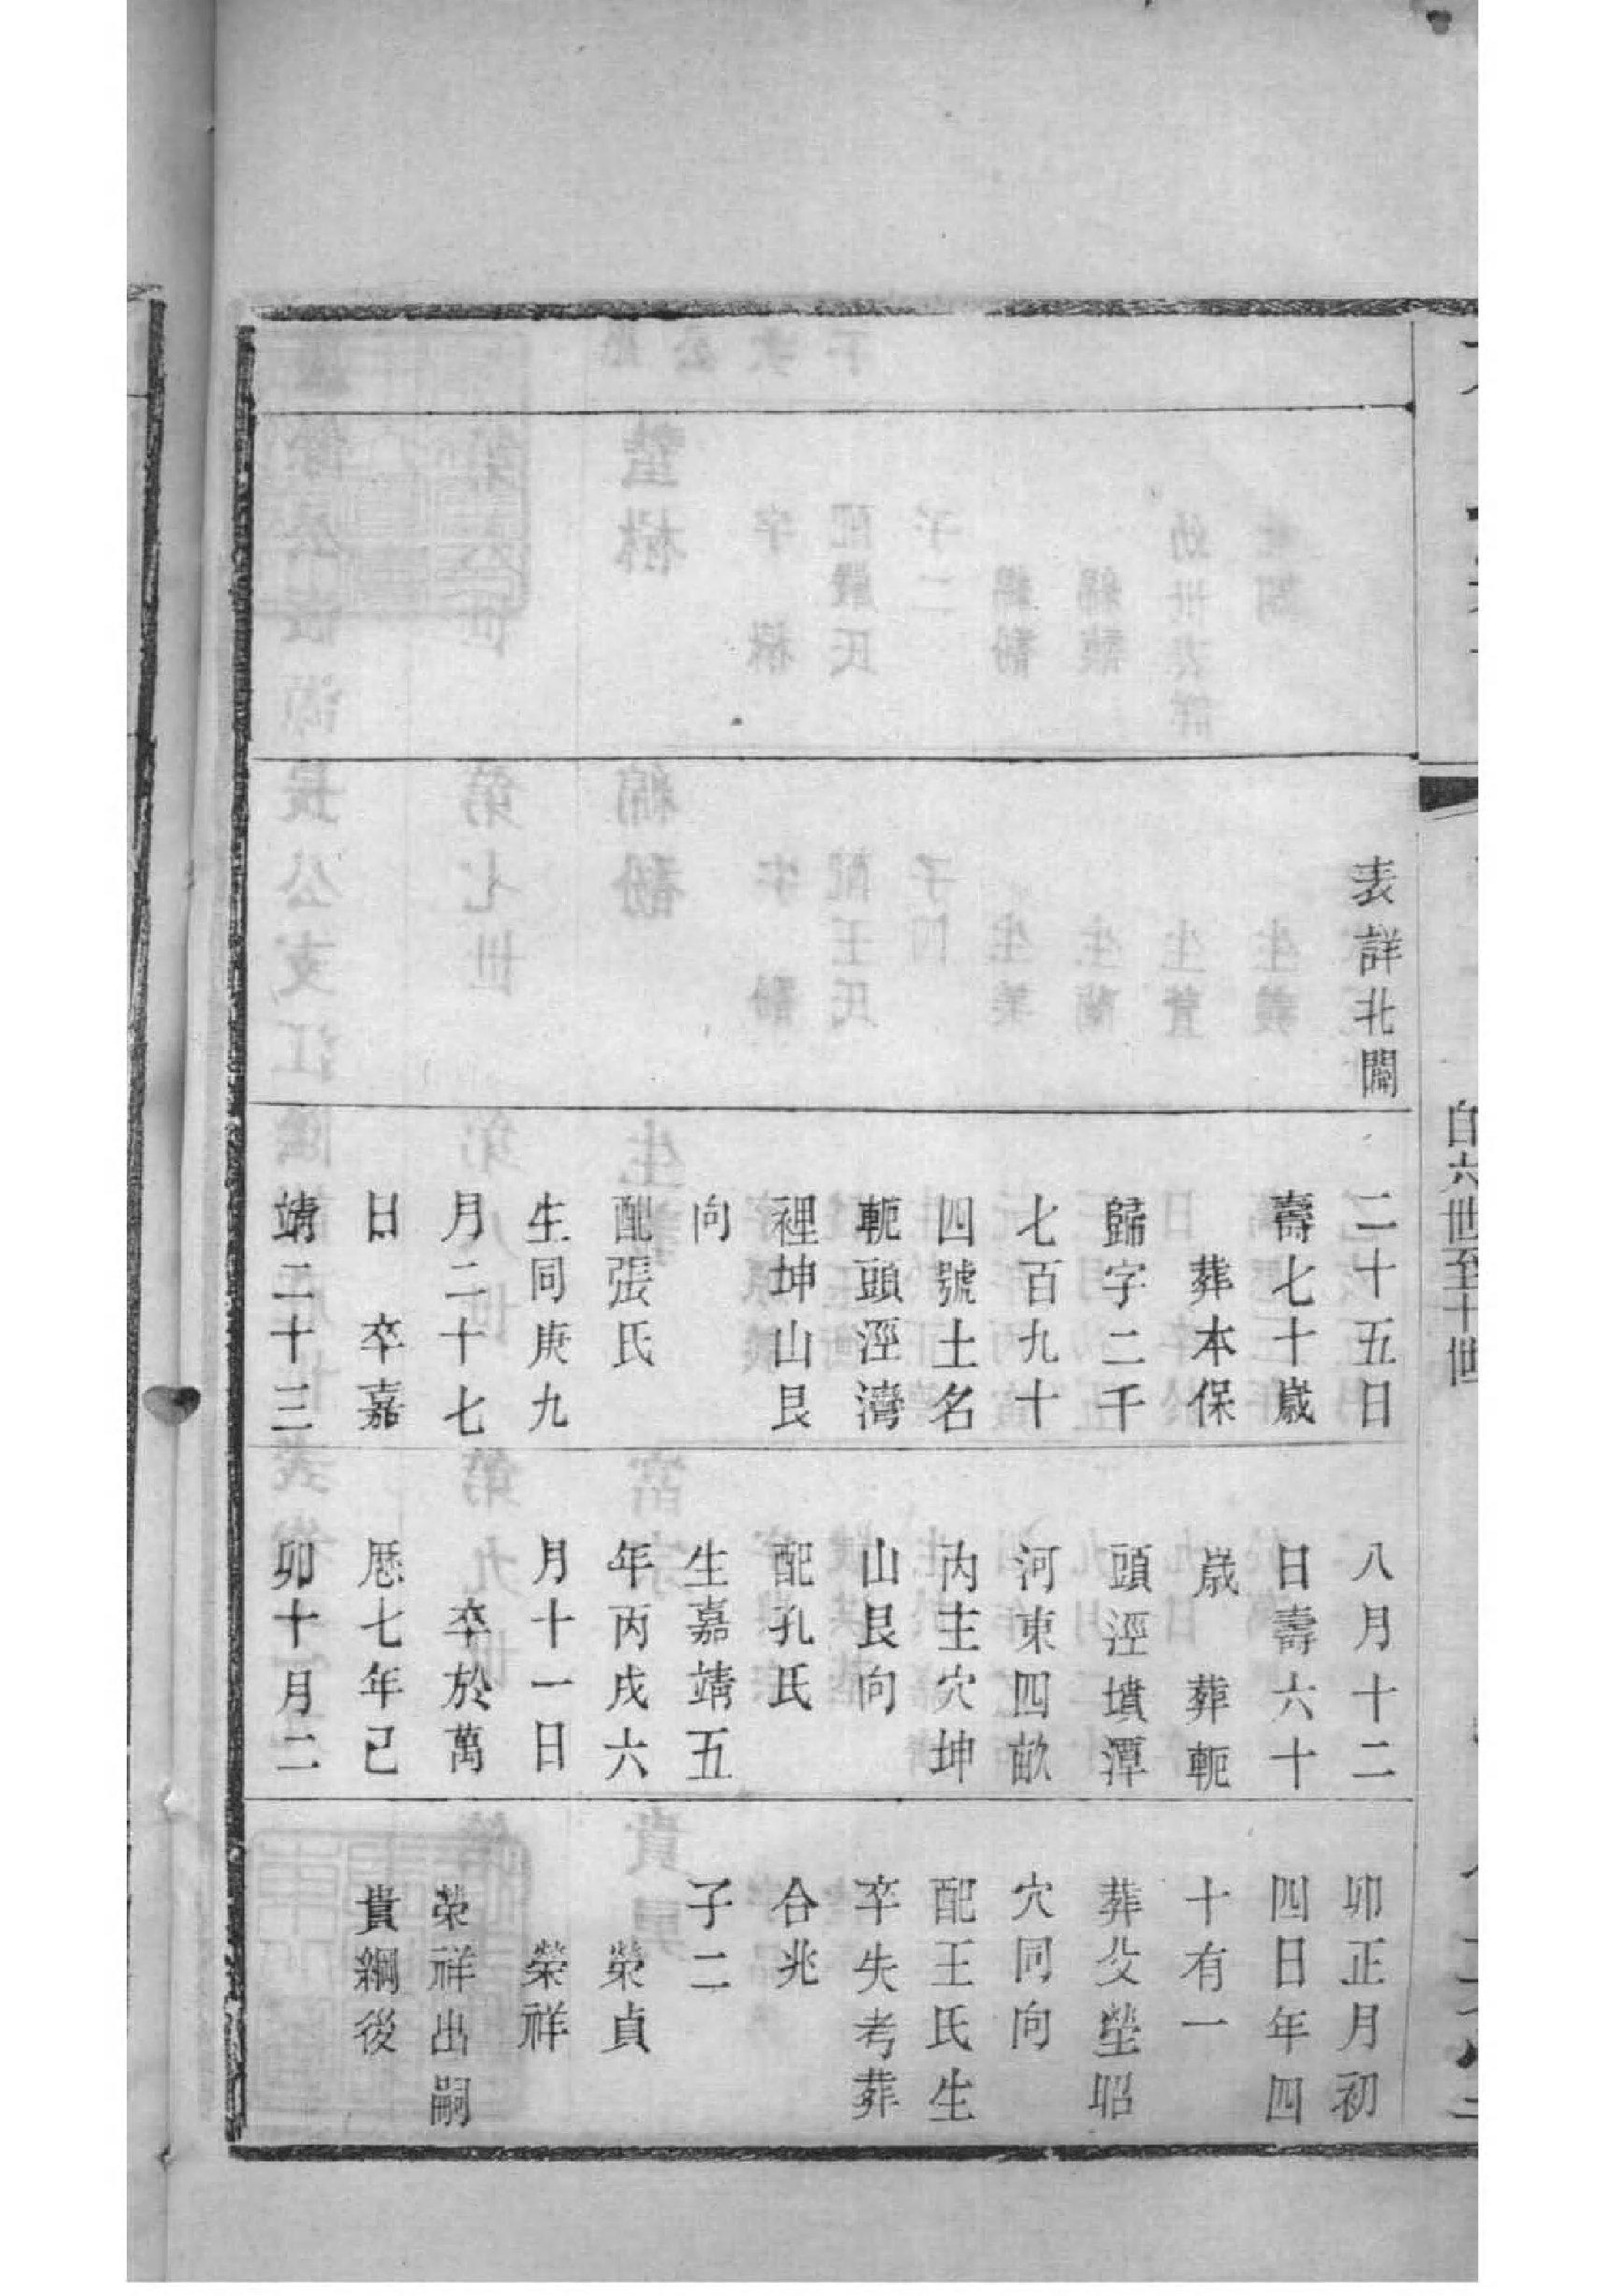 自六世至十世
表詳北閣
二十五日
壽七十歲
葬本保
歸字二千
七百九十
四號土名
軛頭涇灣
裡坤山艮
向
配張氏
生同庚九
月二十七
日　卒嘉
靖二十三
八月十二
日壽六十
歲　葬軛
頭涇墳潭
河東四畝
内主穴坤
山艮向
配孔氏
生嘉靖五
年丙戌六
月十一日
卒於萬
厯七年己
卯十月二
卯正月初
四日年四
十有一
葬父塋昭
穴同向
配王氏生
卒失考葬
合兆
子二
榮貞
榮祥
荣祥出嗣
貴綱後